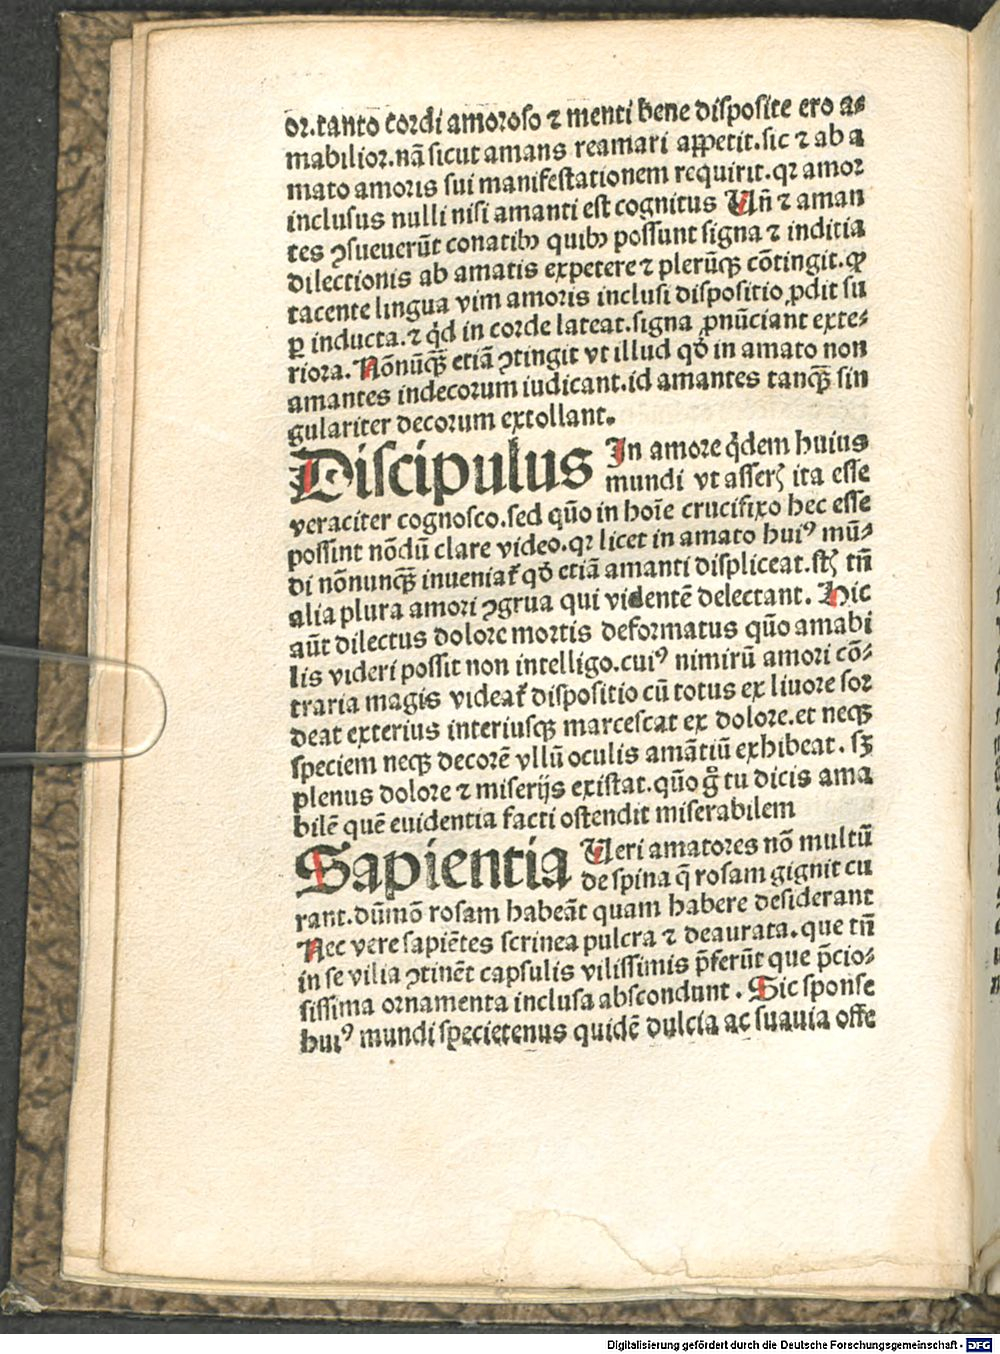 or.tanto cordi amoroso ⁊ menti bene disposite ero a⸗
mabilior.nã sicut amans reamari appetit.sic ⁊ ab a
mato amoris sui manifestationem requirit.qꝛ amor
inclusus nulli nisi amanti est cognitus Uñ ⁊ aman
tes ꝯsueuerũt conatibꝫ quibꝫ possunt signa ⁊ inditia
dilectionis ab amatis expetere ⁊ plerũqꝫ cõtingit.ꝙ
tacente lingua vim amoris inclusi dispositio ꝓdit su
ꝑ inducta.⁊ qd̉ in corde lateat.signa ꝓnũciant exte⸗
riora. Nõnũqꝫ̃ etiã ꝯtingit vt illud qð in amato non
amantes indecorum iudicant.id amantes tanqꝫ̃ sin
gulariter decorum extollant.
Discipulus In amore qͥdem huius
mundi vt asserꝭ ita esse
veraciter cognosco.sed qũo in hoĩe crucifixo hec esse
possint nõdũ clare video.qꝛ licet in amato huiꝰ mũ⸗
di nõnunqꝫ̃ inueniat᷑ qð etiã amanti displiceat.stꝭ tñ
alia plura amori ꝯgrua qui videntẽ delectant. Hic
aũt dilectus dolore mortis deformatus qũo amabi
lis videri possit non intelligo.cuiꝰ nimirũ amori cõ⸗
traria magis videat᷑ dispositio cũ totus ex liuore sor
deat exterius interiusqꝫ marcescat ex dolore.et neqꝫ
speciem neqꝫ decorẽ vllũ oculis amãtiũ exhibeat. sꝫ
plenus dolore ⁊ miserijs existat.qũo gͦ tu dicis ama
bilẽ quẽ euidentia facti ostendit miserabilem
Sapientia Ueri amatores nõ multũ
de spina q̃ rosam gignit cu
rant.dũmõ rosam habeãt quam habere desiderant
Nec vere sapiẽtes scrinea pulcra ⁊ deaurata.que tñ
in se vilia ꝯtinẽt capsulis vilissimis p̃ferũt que p̃cio⸗
sissima ornamenta inclusa abscondunt. Sic sponse
huiꝰ mundi specietenus quidẽ dulcia ac suauia offe
Digitalisierung gefördert durch die Deutsche Forschungsgemeinschaft - DFG